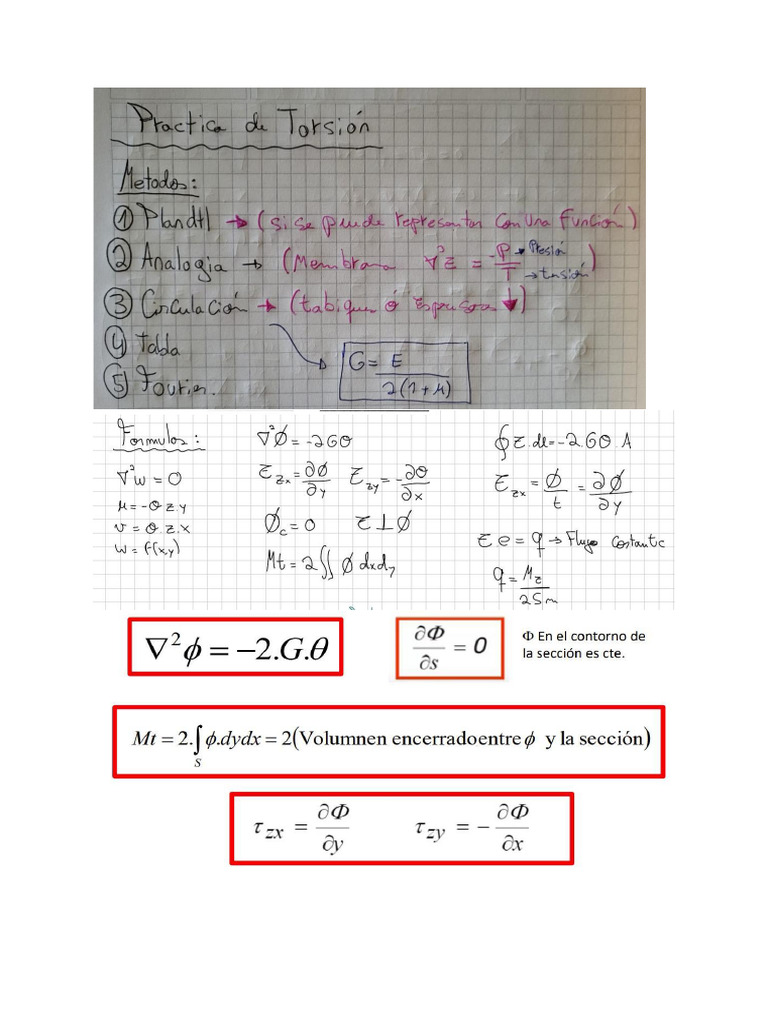 Practica de Torsión
Metodos:
① Plandtl → (si se puede representar con una función)
② Analogia → (Membrana ∇²z = -P/T) P → Presión T → tensión
③ Circulación → (tabique ó espesor ↓)
④ Tabla
⑤ Fourier.
G = E / 2(1+μ)
Formulas:
∇²w = 0
μ = -θ.z.y
v = θ.z.x
w = f(x,y)
∇²ϕ = -2Gθ
τzx = ∂ϕ/∂y τzy = -∂θ/∂x
ϕc = 0 τ ⊥ ϕ
Mt = 2∬ ϕ dxdy
∮ τ.dl = -2.Gθ.A
τzx = ϕ/t = ∂ϕ/∂y
τ e = q → Flujo Costante
q = Mz / 2Sm
∇²ϕ = -2.G.θ
∂Φ/∂s = 0
Φ En el contorno de
la sección es cte.
Mt = 2.∫s ϕ.dydx = 2(Volumnen encerradoentre ϕ y la sección)
τzx = ∂Φ/∂y τzy = -∂Φ/∂x